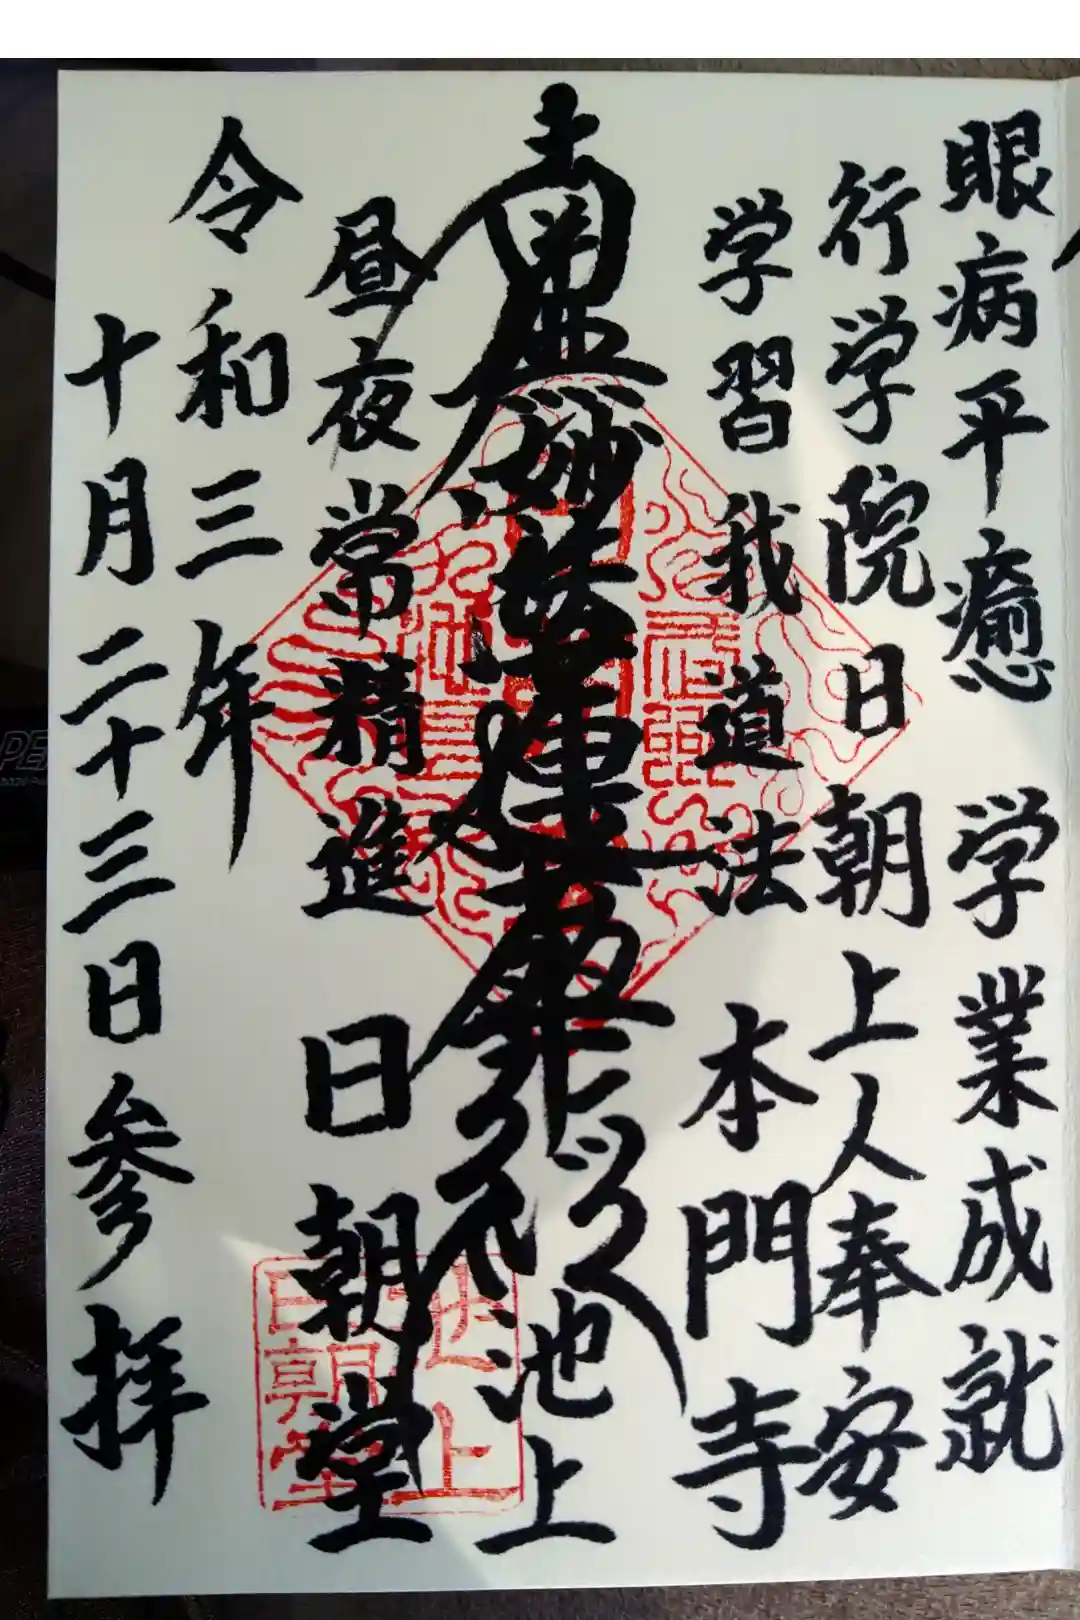 眼病平癒 学業成就
行学院日朝上人奉安
学習我道法 本門寺
南無妙法蓮華経 池上
昼夜常精進 日朝堂
令和三年
十月二十三日参拝
池上
日朝堂